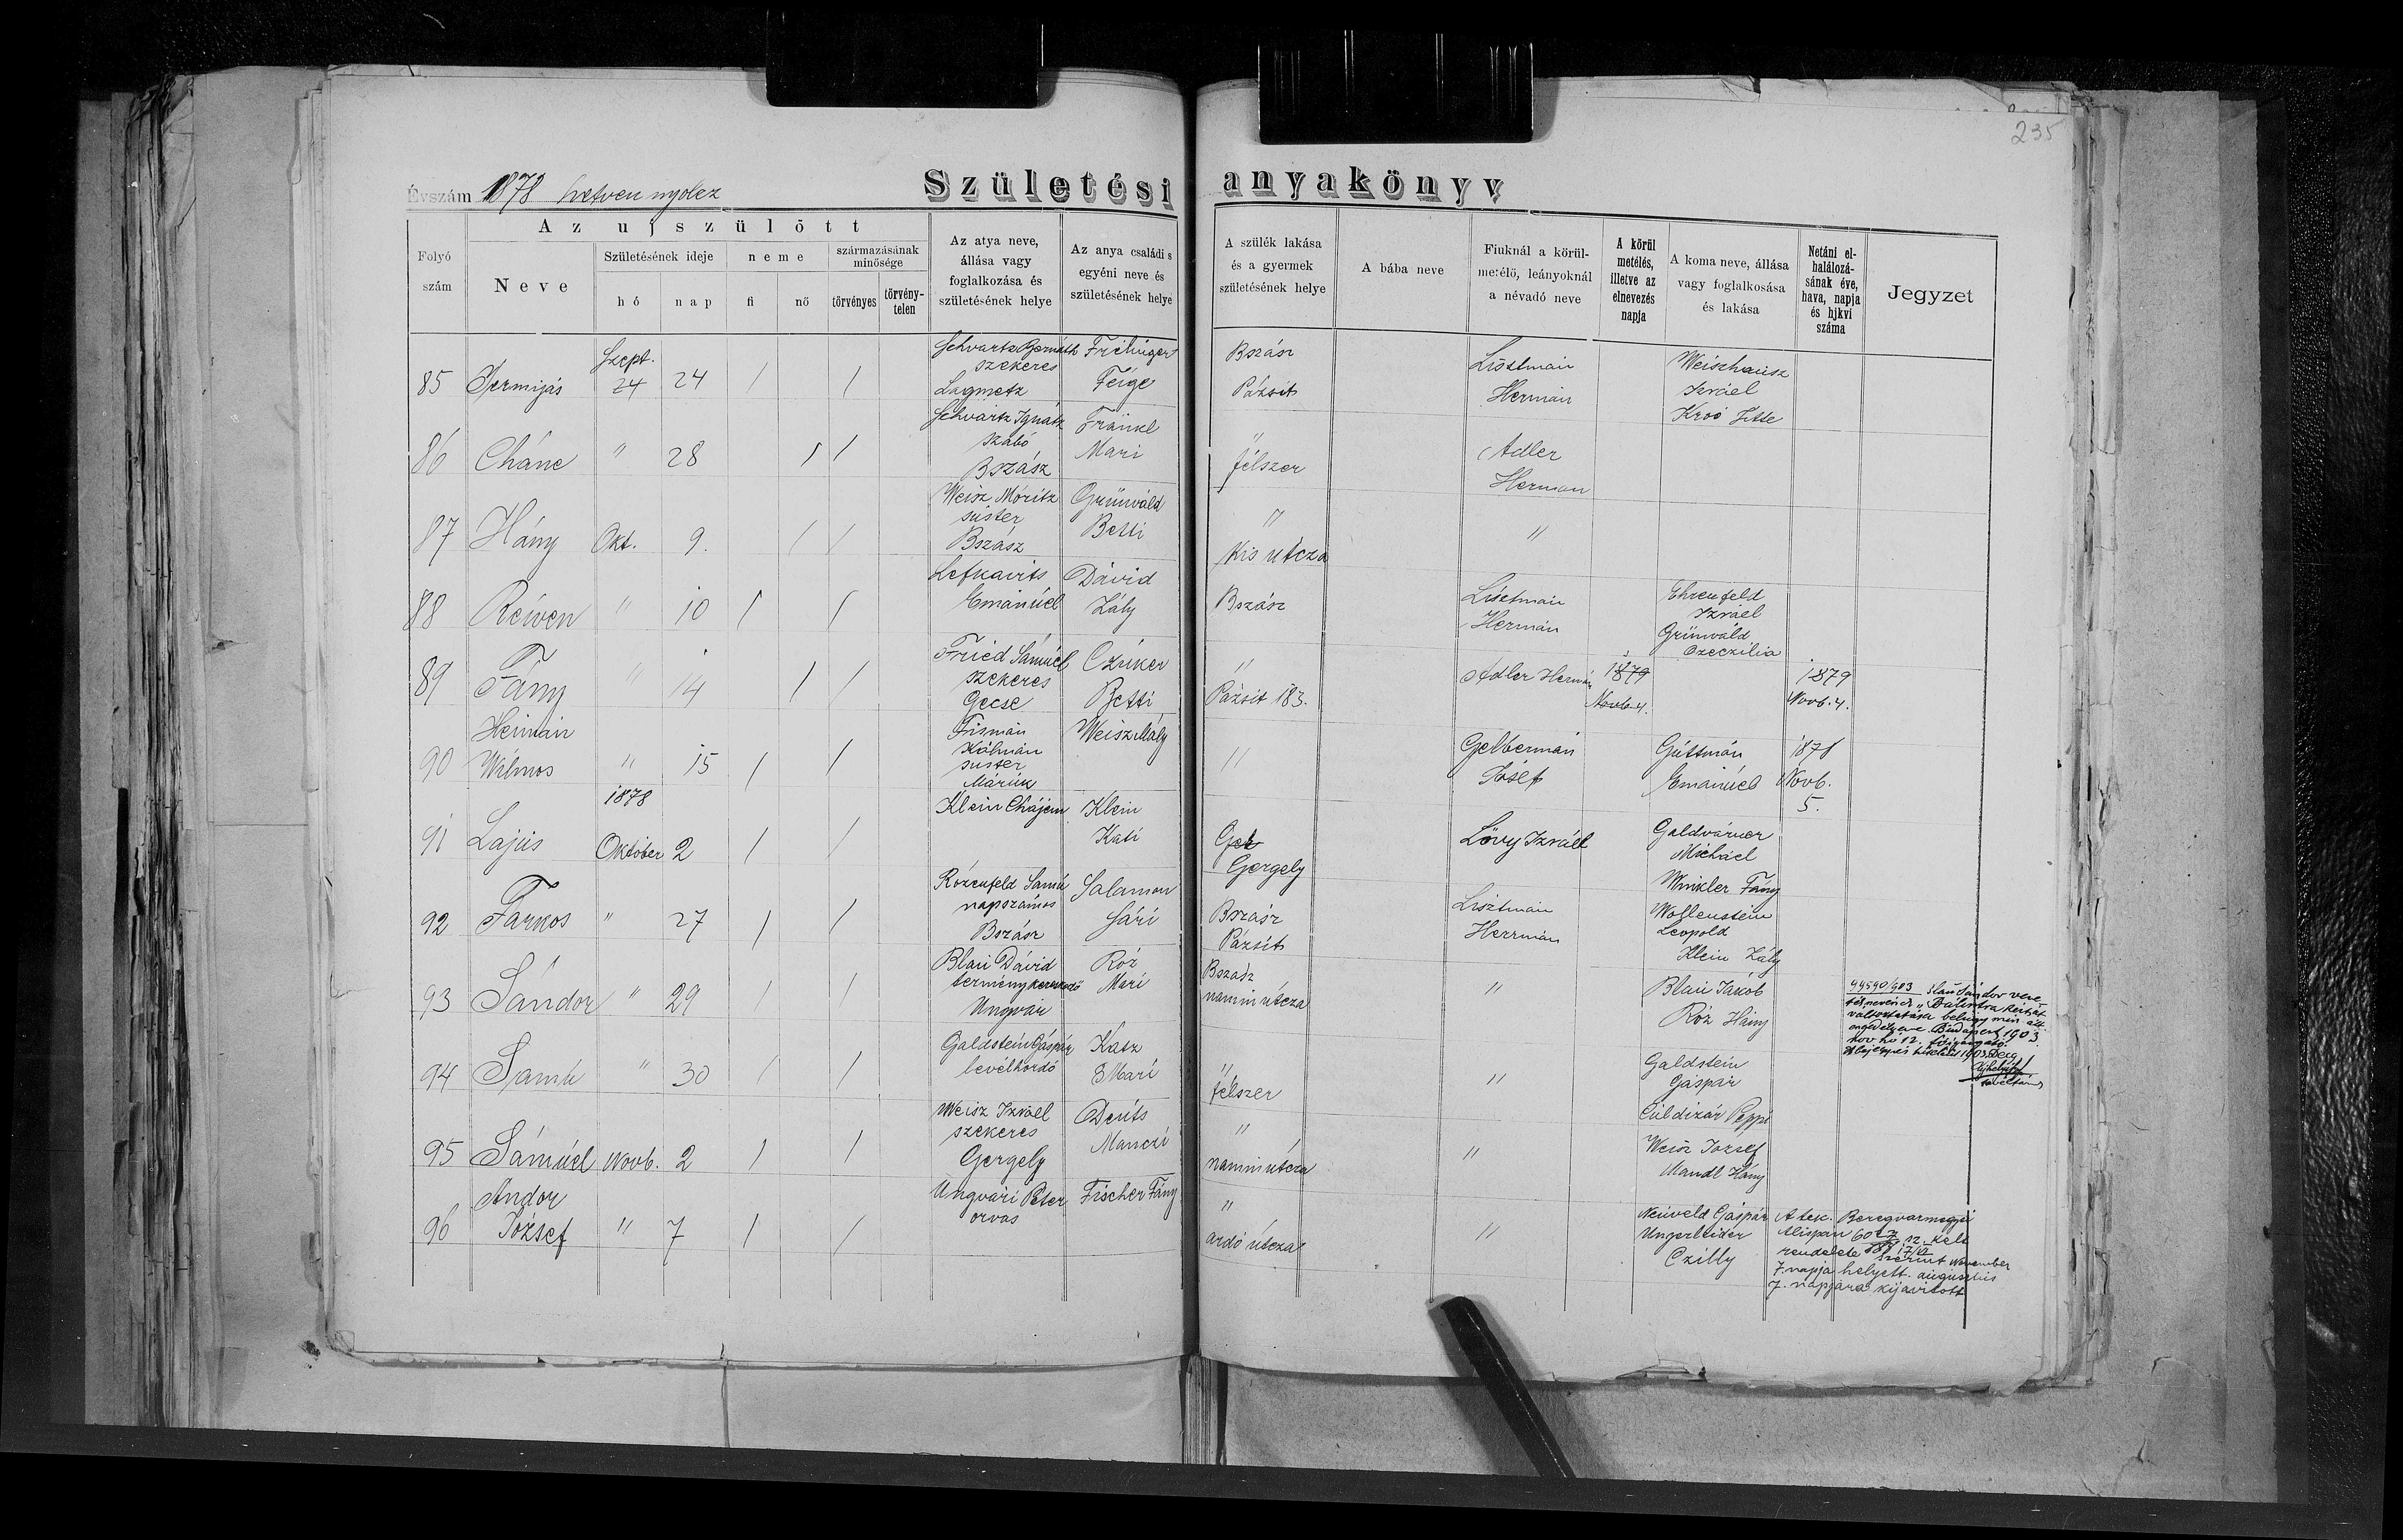 235
Évszám 1878 hetven nyolcz
Születési anyakönyv
Folyó szám
Az ujszülött
Neve
Születésének ideje
hó
nap
neme
fi
nő
származásának minősége
törvényes
törvény-telen
Az atya neve, állása vagy foglalkozása és születésének helye
Az anya családi s egyéni neve és születésének helye
A szülék lakása és a gyermek születésének helye
A bába neve
Fiuknál a körül-metélő, leányoknál a névadó neve
A körül metélés, illetve az elnevezés napja
A koma neve, állása vagy foglalkosása és lakása
Netáni el-halálozá-sának éve, hava, napja és hjkvi száma
Jegyzet
85 Jermijás Szept. 24 24 / / Schvartz Bernáth szekeres Lagmetz Feige Bszász Pázsit Lisztmán Hermán Weiszhausz Izráel Kroó Jitte
86 Cháne " 28 / / Schvártz Ignátz szabó Bszász Fränkl Mari " félszer Adler Herman
87 Hány Okt. 9. / / Weisz Móritz suster Bszász Grünváld Betti " Kis utcza "
88 Reiven " 10 / / Lefkavits Emánúel Dávid Zály Bszász Lisztmán Hermán Ehrenfeld Izráel Grünváld Czeczilia
89 Fány " 14 / / Fried Sámúel szekeres Gecse Czuker Betti " Pázsit 183. Adler Hermán 1879 Novb. 4. 1879 Novb. 4.
90 Heimán Wilmos " 15 / / Frismán Kálmán suster Máriuk Weisz Mály " Gelbermán Jósef Gúttmán Emánúel 1878 Novb. 5.
91 Lajús 1878 Október 2 / / Klein Chájem Klein Kati Gergely Lövy Izráel Goldvárner Michael Winkler Fány
92 Farkos " 27 / / Rózenfeld Samu napszámos Bszász Salamon Sári Bszász Pázsit Lisztmán Herrmán Wollenstein Leopold Klein Zály
93 Sándor " 29 / / Blau Dávid terménykereskedő Ungvár Róz Mari Bszász namin útcza " Blau Jakob Róz Hány
94 Samu " 30 / / Galdstein Gáspár levélhordó Katz Mari " félszer " Galdstein Gáspár Peppi
95 Sámúel Novb. 2 / / Weisz Izráel szekeres Gergely Deuts Manczi " namin útcza " Weisz József Mandl Hány
96 Andor József " 7 / / Ungvári Péter orvos Fischer Fány " ardó útcza " Neuveld Gáspár Czilly
A tek. Beregvarmegyei Alispán kelt rendelete szerint November 7. napja helyett augusztus 7. napjára kijavitott